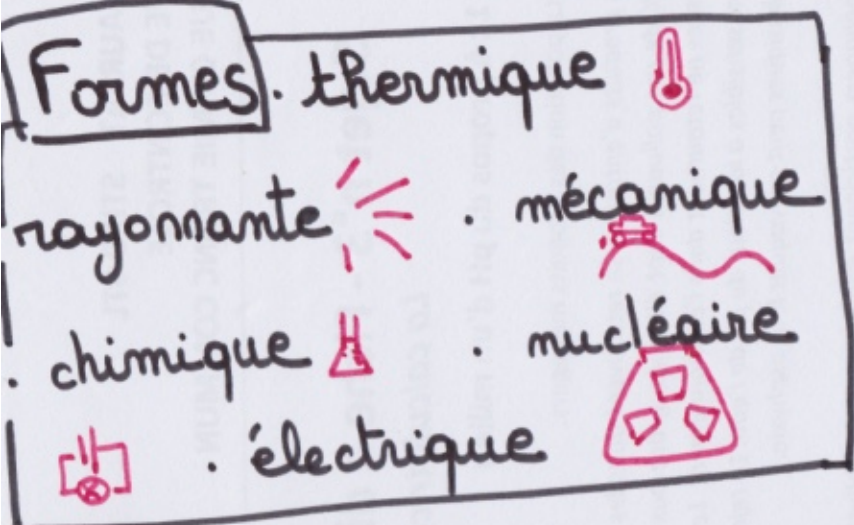 Formes · thermique
rayonnante · mécanique
· chimique · nucléaire
· électrique